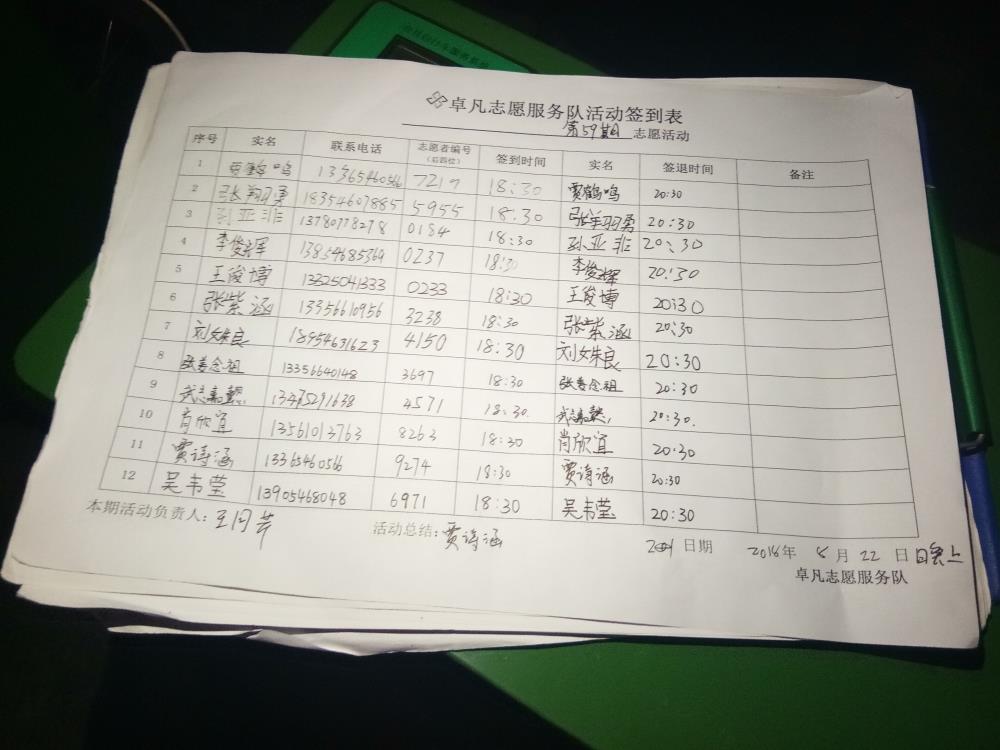 卓凡志愿服务队活动签到表
第59期 志愿活动
序号 实名 联系电话 志愿者编号（后四位） 签到时间 实名 签退时间 备注
1 贾鹤鸣 13365460566 7217 18:30 贾鹤鸣 20:30
2 张翔勇 18354607885 5955 18:30 张翔勇 20:30
3 孙亚非 13780778278 0184 18:30 孙亚非 20:30
4 李俊辉 13854685369 0237 18:30 李俊辉 20:30
5 王俊博 13325041333 0233 18:30 王俊博 20:30
6 张紫涵 13356610956 3238 18:30 张紫涵 20:30
7 刘姝良 18954631623 4150 18:30 刘姝良 20:30
8 张善念祖 13356640148 3697 18:30 张善念祖 20:30
9 武志嘉懿 13475291638 4571 18:30. 武志嘉懿 20:30.
10 肖欣宜 13561013763 8263 18:30 肖欣宜 20:30
11 贾诗涵 13365460566 9274 18:30 贾诗涵 20:30
12 吴韦莹 13905468048 6971 18:30 吴韦莹 20:30
本期活动负责人： 活动总结：贾诗涵
日期 2018年 8月22日 晚上
卓凡志愿服务队